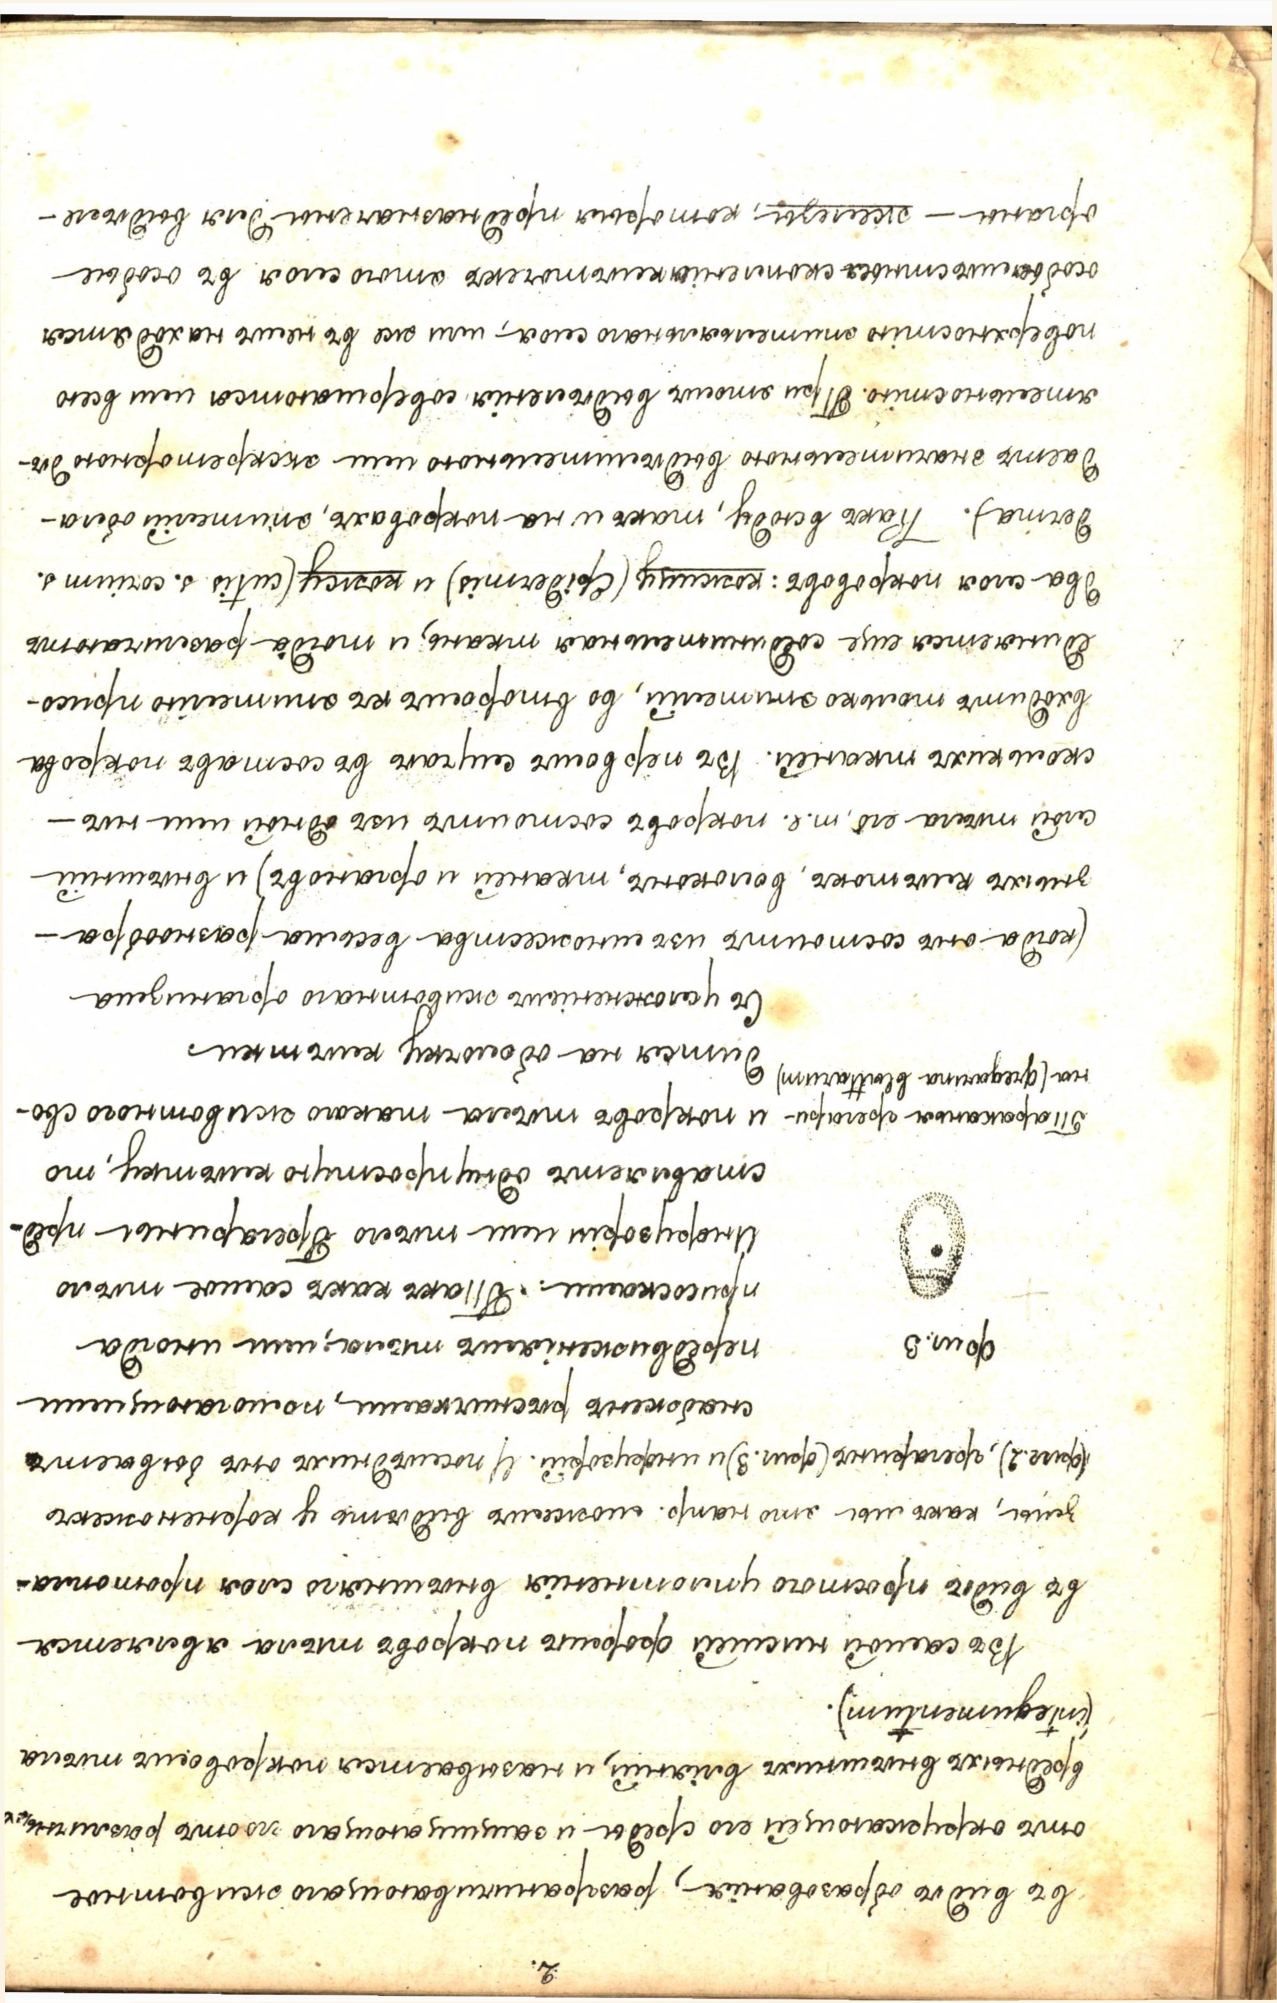 2.
въ видѣ образованія, разграничивающаго животное
отъ окружающей его среды и защищающаго его отъ различныхъ
вредныхъ внѣшнихъ вліяній, и называется покровомъ тѣла
(integumentum).
Въ самой низшей формѣ покровъ тѣла является
въ видѣ простого уплотненія внѣшняго слоя протоплаз-
змы, какъ мы это напр. можемъ видѣть у корненожекъ
(фиг. 2), грегаринъ (фиг. 3) и инфузорій. У послѣднихъ онъ бываетъ
снабженъ рѣсничками, помогающими
передвиженіямъ тѣла, или иногда
присосками. Такъ какъ самое тѣло
Инфузоріи или тѣло Грегарины пред-
ставляетъ одну простую клѣтку, то
и покровъ тѣла такого животнаго сво-
дится на оболочку клѣтки.
фиг. 3
Тараканья грегари-
на (gregarina blattarum)
Съ усложненіемъ животнаго организма
(когда онъ состоитъ изъ множества весьма разнообра-
зныхъ клѣтокъ, волоконъ, тканей и органовъ) и внѣшній
слой тѣла его, т. е. покровъ состоитъ изъ одной или нѣ-
сколькихъ тканей. Въ первомъ случаѣ въ составъ покрова
входитъ только эпителій, во второмъ къ эпителію присо-
единяется еще соединительная ткань, и тогда различаютъ
два слоя покрововъ: кожицу (Epidermis) и кожу (cutis s. corium s.
derma). Какъ всюду, такъ и на покровахъ, эпителій обла-
даетъ значительною выдѣлительною или экскреторною дѣ-
ятельностію. При этомъ выдѣленія совершаются или всею
поверхностію эпителіальнаго слоя, или же въ немъ находятся
особыя мѣстныя скопленія клѣточекъ этого слоя въ особые
органы — железы, которыя предназначены для выдѣле-